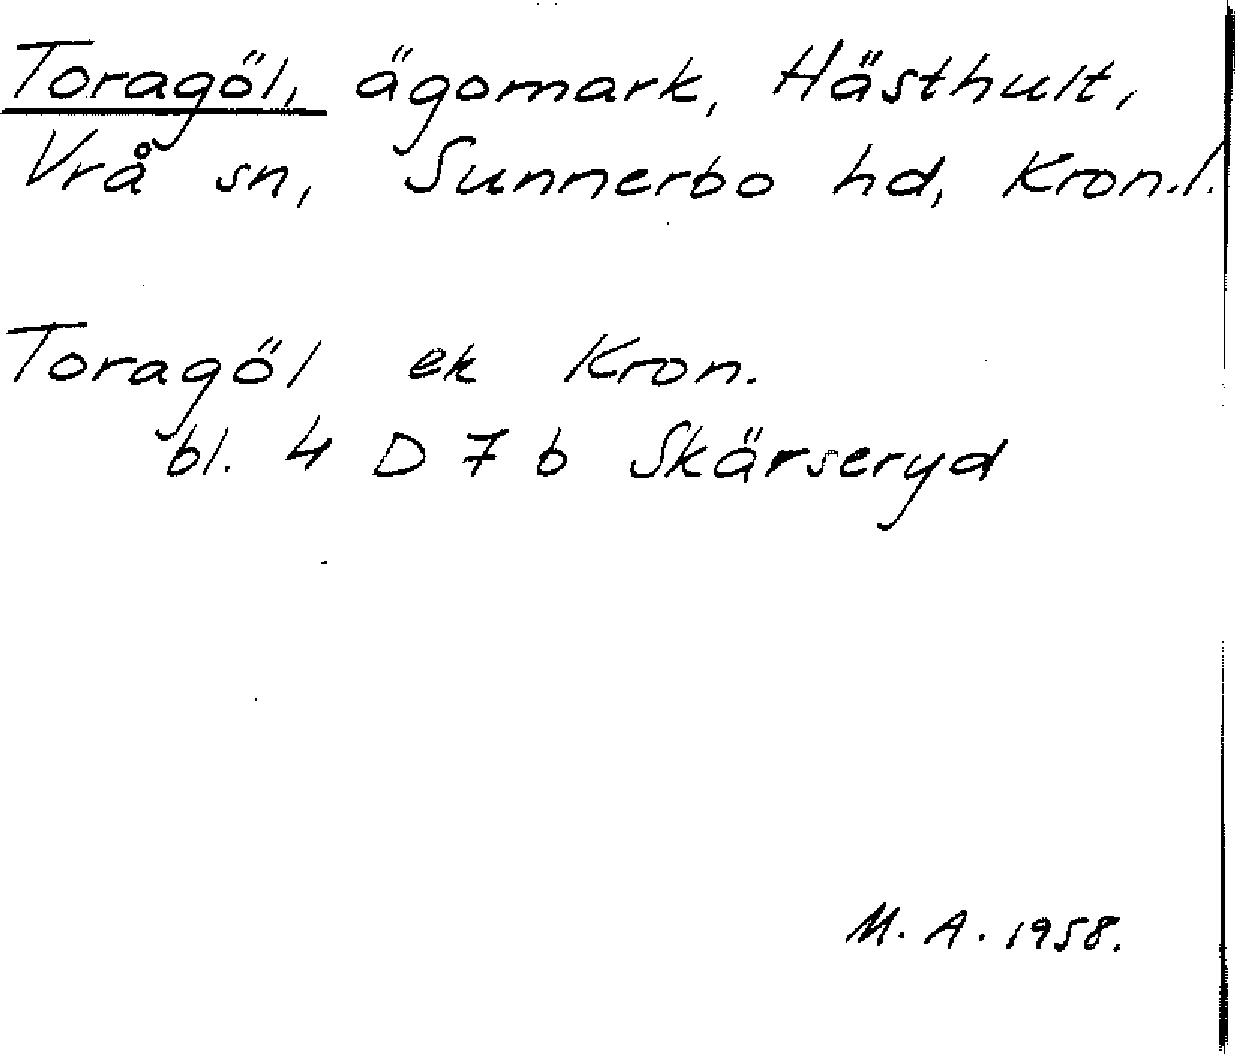 Toragöl, ägomark, Hästhult,
Vrå sn, Sunnerbo hd, Kron.l.
Toragöl ek Kron.
bl. 4 D 7 b Skärseryd
M. A. 1958.